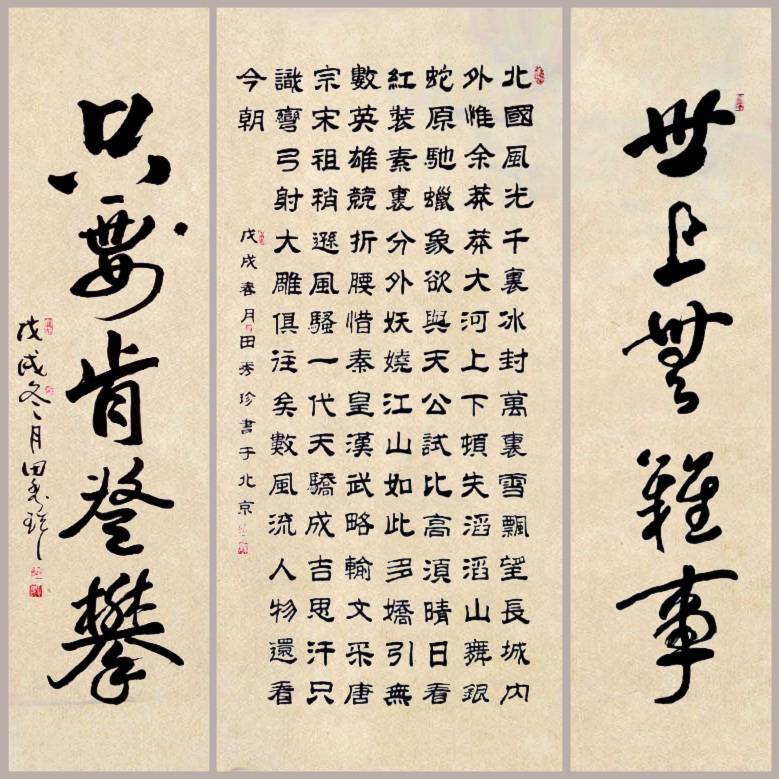 世上無難事
北國風光千裏冰封萬裏雪飄望長城内
外惟余莽莽大河上下頓失滔滔山舞銀
蛇原馳蠟象欲與天公試比高須晴日看
紅裝素裏分外妖嬈江山如此多嬌引無
數英雄競折腰惜秦皇漢武略輸文采唐
宗宋祖稍遜風騷一代天驕成吉思汗只
識彎弓射大雕俱往矣數風流人物還看
今朝
戊戌春月田秀珍書于北京
只要肯登攀
戊戌冬月田秀珍